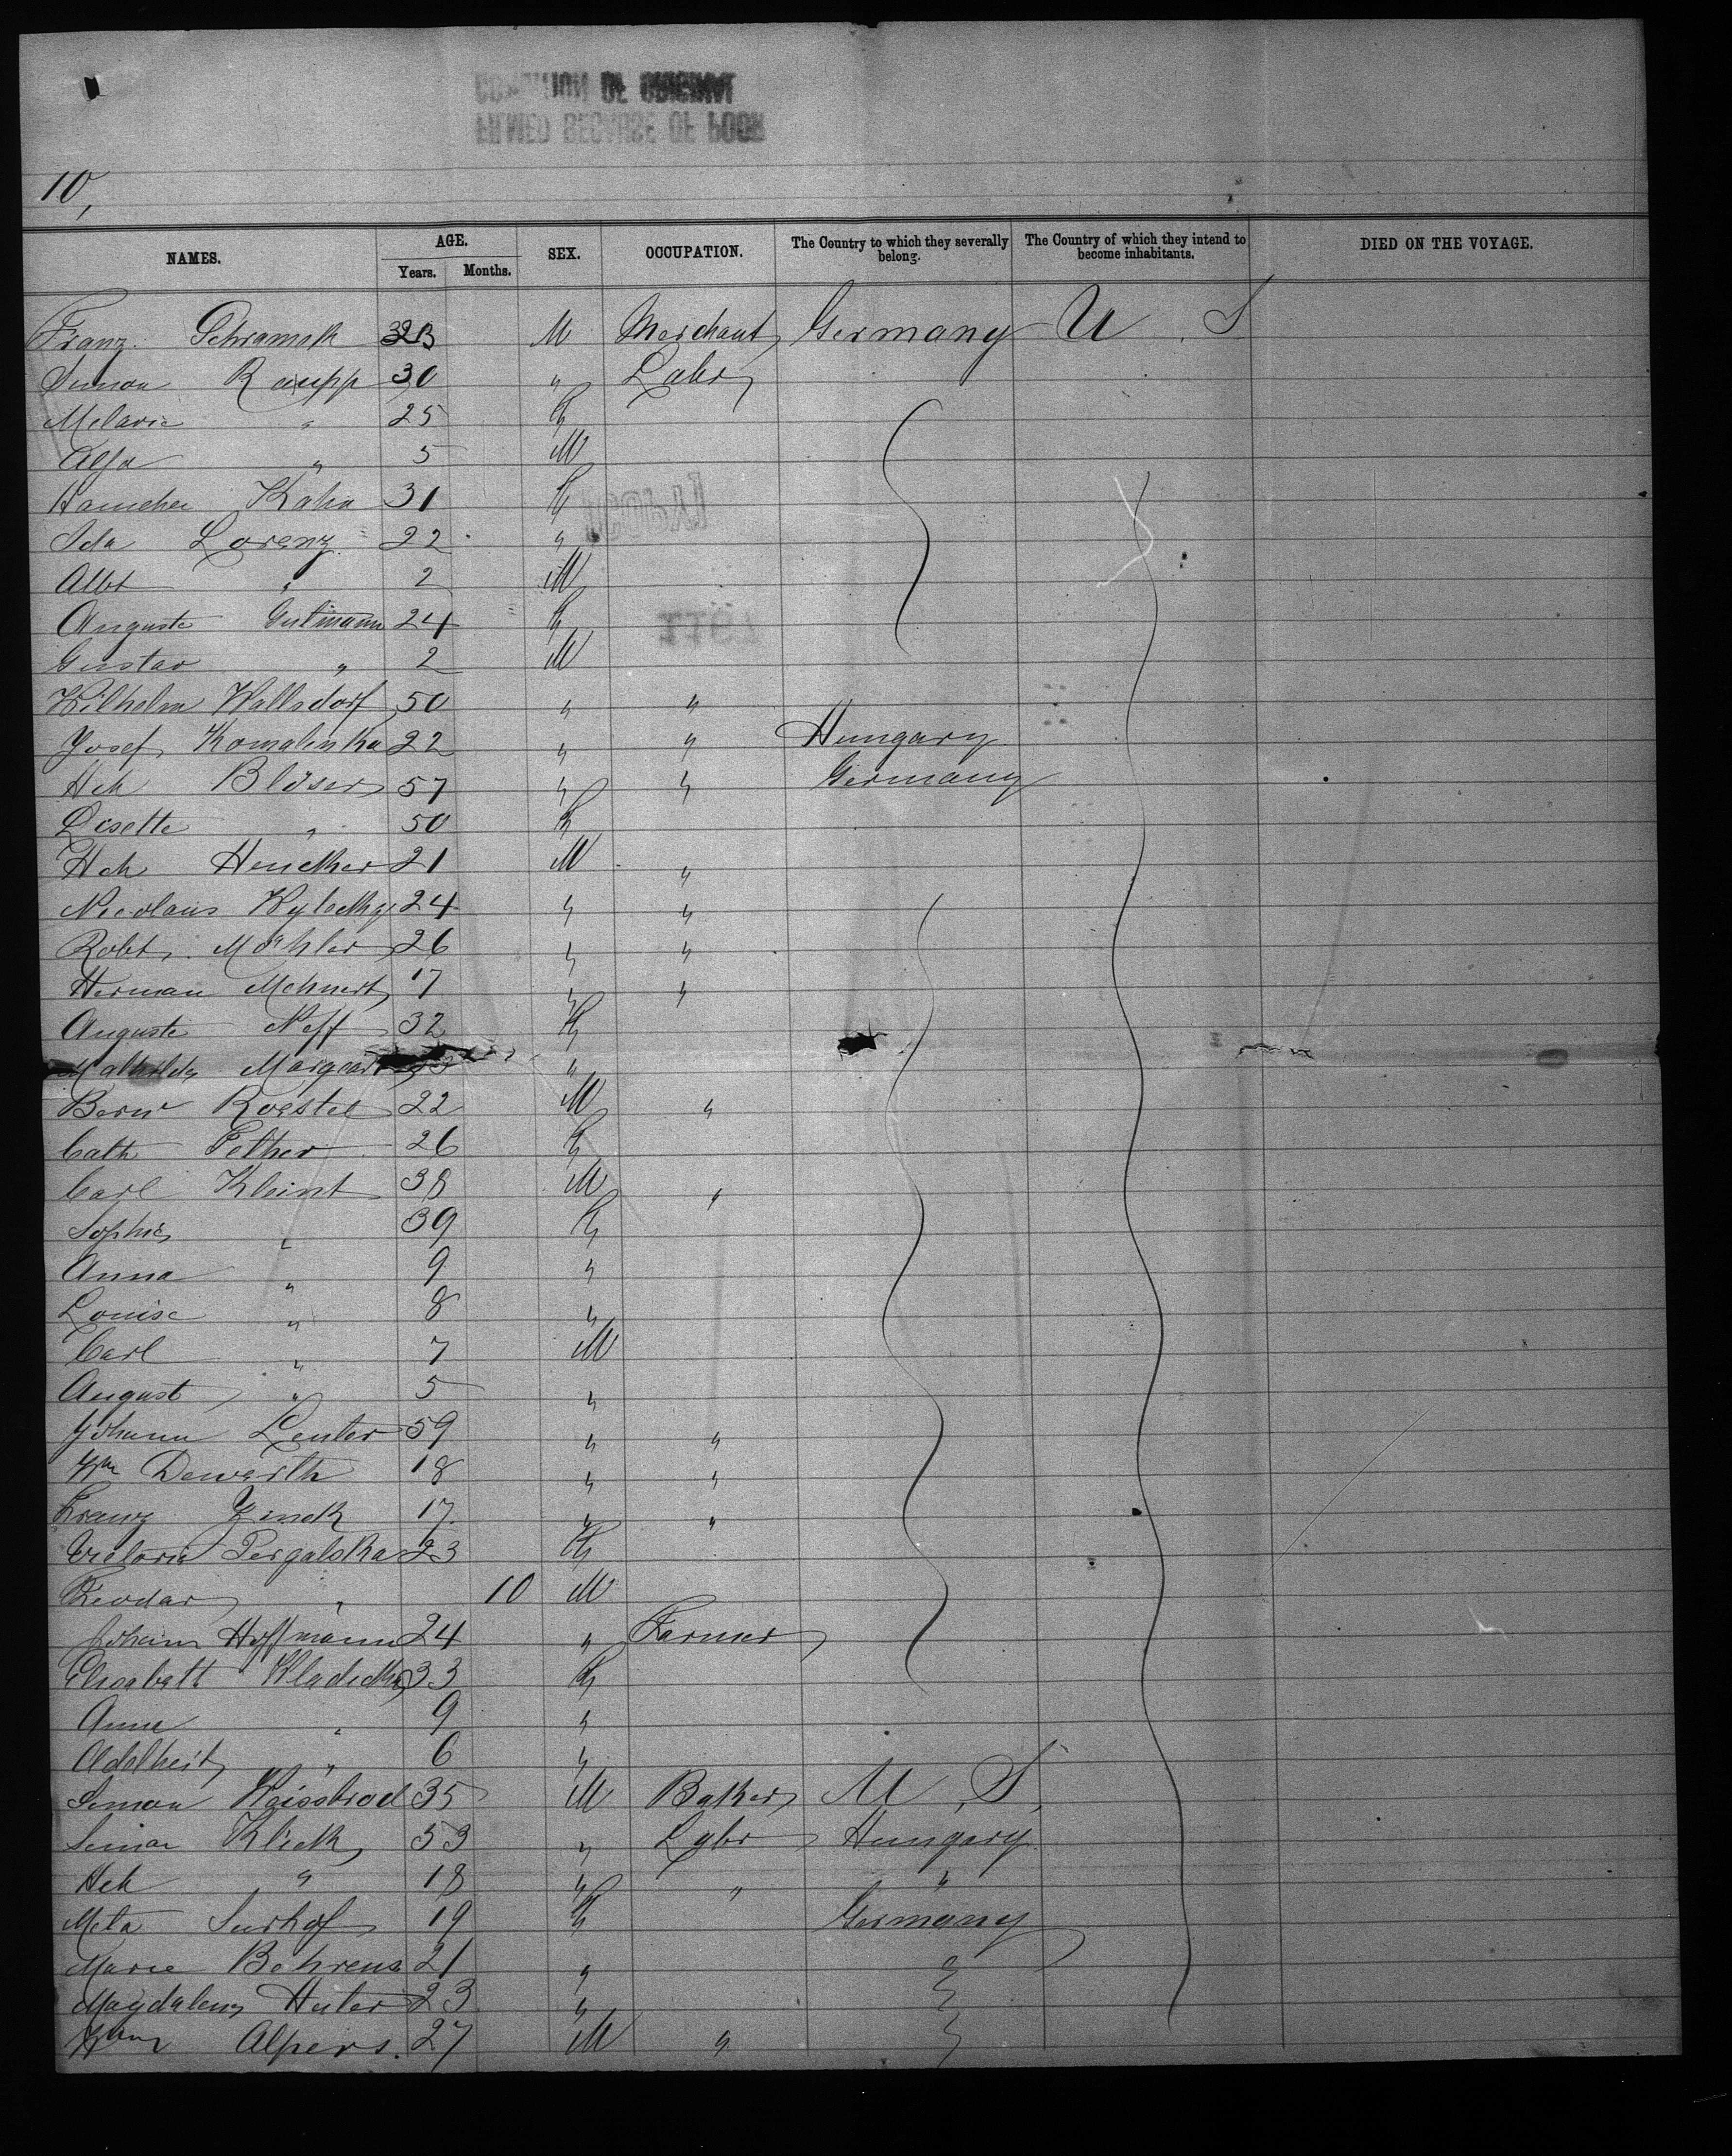 10,
NAMES. AGE. Years. Months. SEX. OCCUPATION. The Country to which they severally belong. The Country of which they intend to become inhabitants. DIED ON THE VOYAGE.
Franz Schramek M Merchant Germany U S
Simon Raupp 30 " Labr
Melanie " 25 F
" 5 M
Kahn 31 F
Ida Lorenz 22 "
Albt " 2 M
Auguste Gutmann 24 F
Gustav " 2 M
Wilhelm Wallsdorf 50 " "
Josef Komalinka 22 " " Hungary
Hch Bläser 57 " " Germany
Lisette " 50 F
Hch 21 M "
Nicolaus 24 " "
Robt. 26 " "
Herman Mehnert 17 " "
Auguste Neff 32 F
Mathilde "
Bernd Roestel 22 M "
Cath Pether 26 F
Carl Kleint 38 M "
Sophie " 39 F
Anna " 9 "
Louise " 8 "
Carl " 7 M
August " 5 "
Johann Leuter 59 " "
Wm Dewerth 18 " "
Franz Zinck 17 " "
Victoria Pergalska 23 F
" 10 M
Johann Hoffmann 24 " Farmer
Elisabeth 33 F
Anna " 9 "
Adelheit " 6 "
Simon Weissbrod 35 M Baker U. S.
Simon Klick 53 " Labr Hungary
Hch " 18 " " "
Meta Surhof 19 F Germany
Marie Behrens 21 " "
Magdalena Huler 23 " "
Alpers. 27 M " "